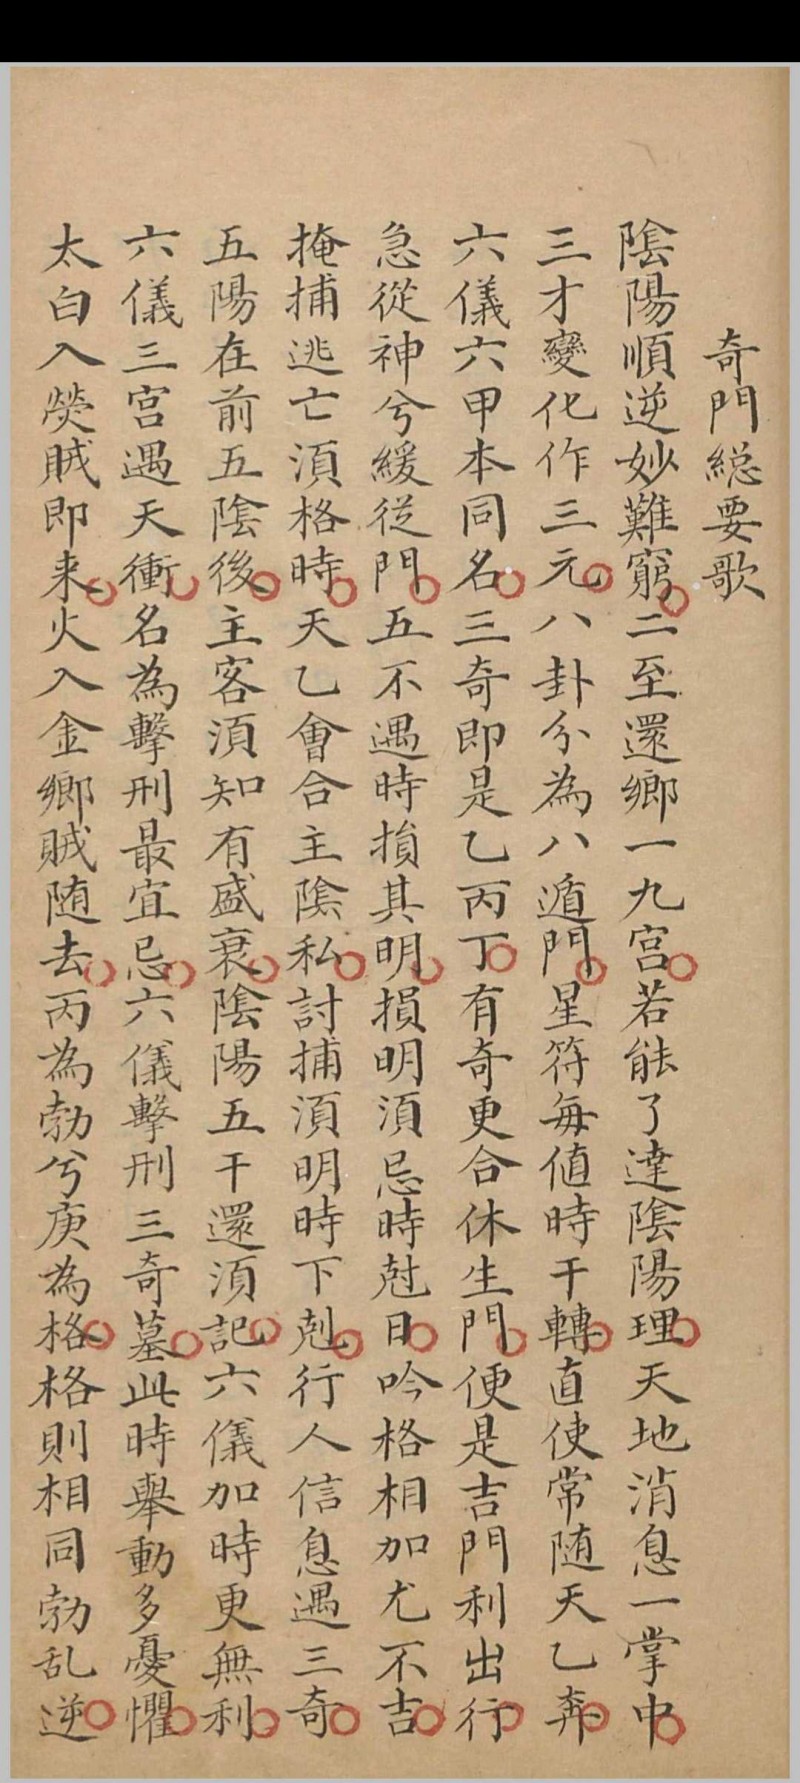 奇門緫要歌
陰陽順逆妙難窮二至還鄉一九宮若能了達陰陽理天地消息一掌中
三才變化作三元八卦分為八遁門星符每值時干轉直使常随天乙奔
六儀六甲本同名三奇即是乙丙丁有奇更合休生門便是吉門利出行
急從神兮緩從門五不遇時損其明損明須忌時尅日吟格相加尤不吉
掩捕逃亡湏格時天乙會合主陰私討捕湏明時下剋行人信息遇三奇
五陽在前五陰後主客湏知有盛衰陰陽五干還湏記六儀加時更無利
六儀三宮遇天衝名為擊刑最宜忌六儀擊刑三奇墓此時舉動多憂懼
太白入熒賊即来火入金鄉賊随去丙為勃兮庚為格格則相同勃乱逆